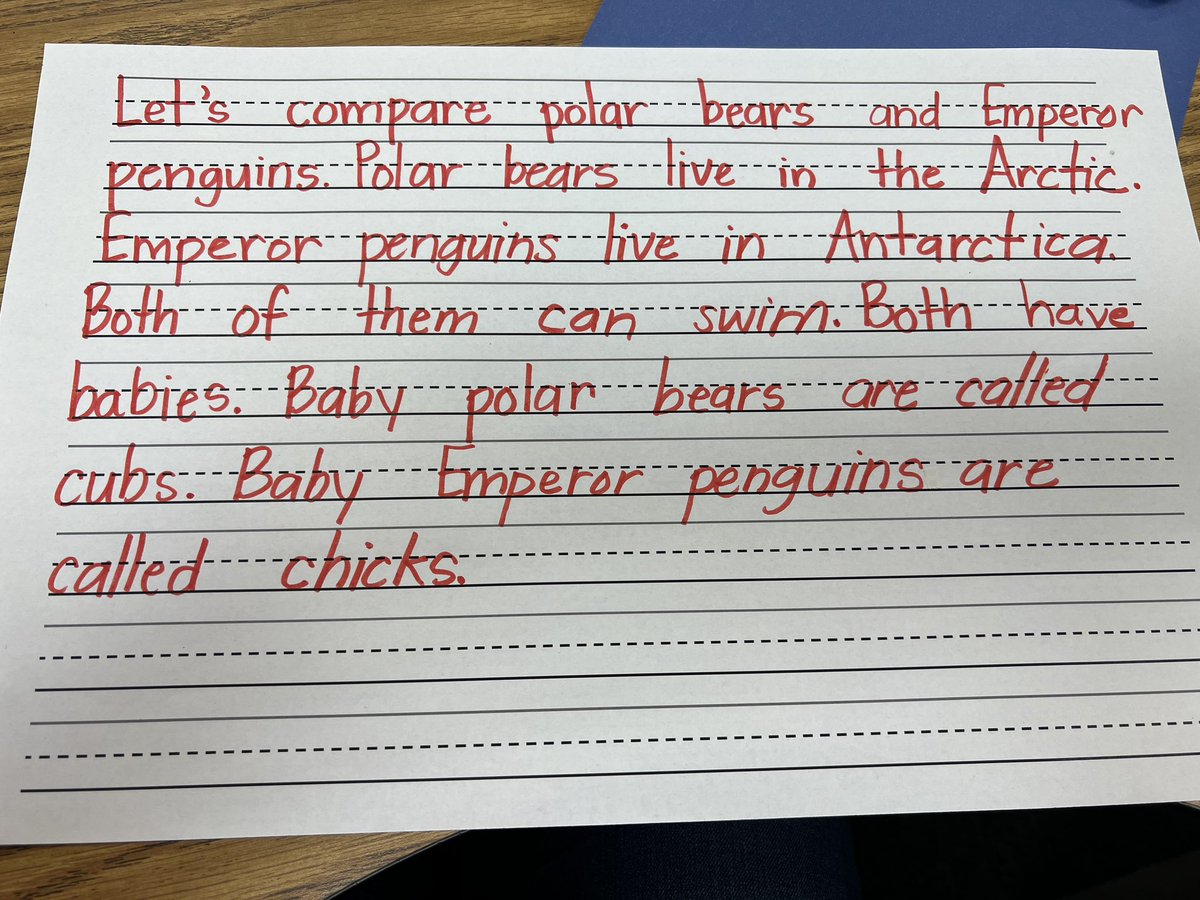 Let's compare polar bears and Emperor
penguins. Polar bears live in the Arctic.
Emperor penguins live in Antarctica.
Both of them can swim. Both have
babies. Baby polar bears are called
cubs. Baby Emperor penguins are
called chicks.